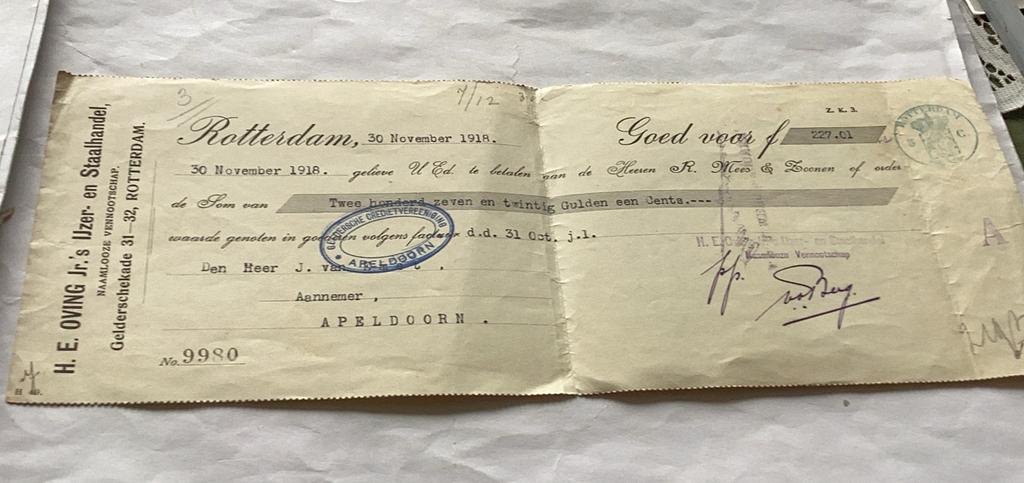 H. E. OVING Jr.'s IJzer- en Staalhandel,
NAAMLOOZE VENNOOTSCHAP.
Gelderschekade 31-32, ROTTERDAM.
3
7/12
Z. K. 3.
Rotterdam, 30 November 1918.
Goed voor f 227.01
30 November 1918. gelieve U Ed. te betalen aan de Heeren R. Mees & Zoonen of order
de Som van Twee honderd zeven en twintig Gulden een Cents.---
waarde genoten in goederen volgens factuur d.d. 31 Oct. j.l.
GELDERSCHE CREDIETVEREENIGING
APELDOORN
Den Heer J. van
Aannemer,
APELDOORN.
No. 9980
H. E. Oving Jr.'s IJzer- en Staalhandel
Naamlooze Vennootschap
pp.
v.d. Berg.
ROTTERDAM
A